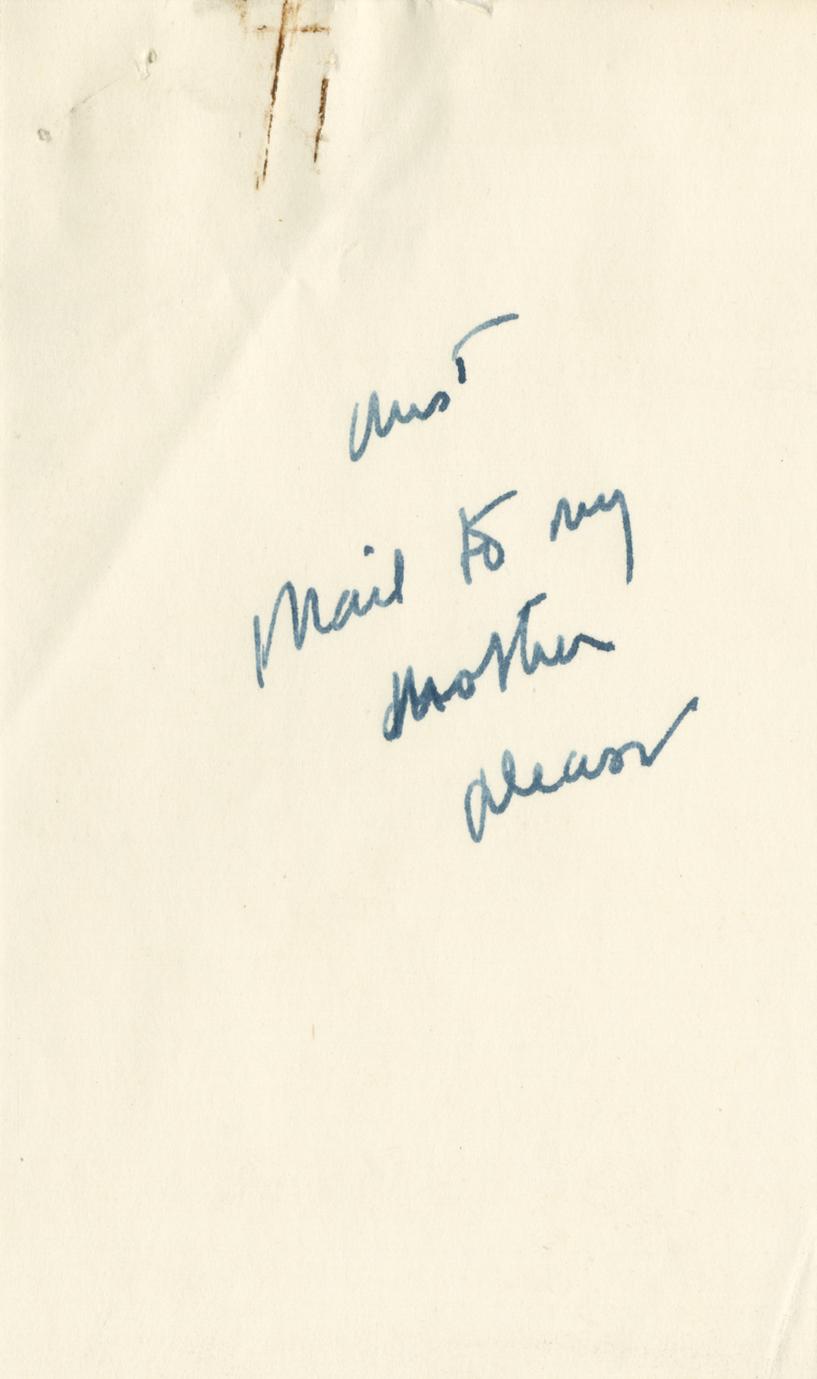 Must
Mail to my
Mother
please